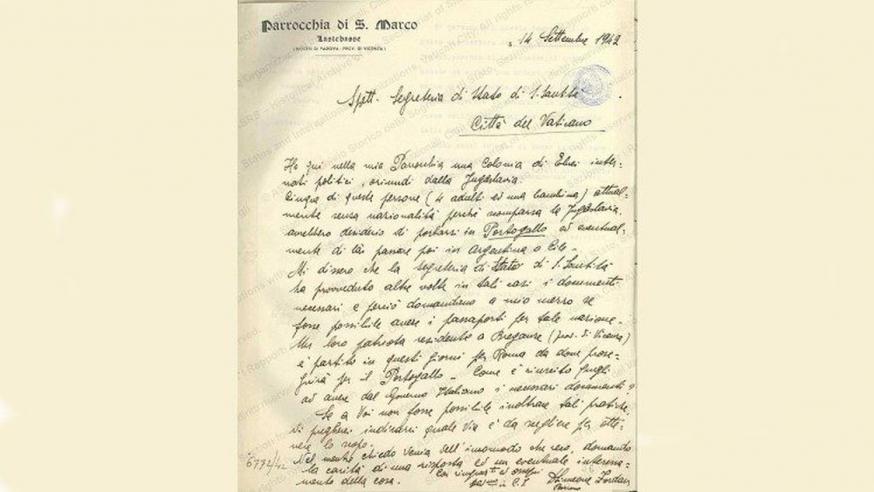 Parrocchia di S. Marco
Lastebasse
(DIOCESI DI PADOVA - PROV. DI VICENZA)
14 Settembre 1942
Spett. Segreteria di Stato di S. Santità
Città del Vaticano
Ho qui nella mia Parrocchia una Colonia di Ebrei inter-
nati politici, oriundi dalla Jugoslavia.
Cinque di queste persone (4 adulti ed una bambina) attual-
mente senza nazionalità perchè scomparsa la Jugoslavia,
avrebbero desiderio di portarsi in Portogallo ed eventual-
mente di là passare poi in Argentina o Cile.
Mi dissero che la Segreteria di Stato di S. Santità
ha provveduto altre volte in tali casi i documenti
necessari e perciò domandano a mio mezzo se
fosse possibile avere i passaporti per tale nazione.
Un loro patriota residente a Breganze (prov. di Vicenza)
è partito in questi giorni per Roma da dove prose-
guirà per il Portogallo. Come è riuscito quegli
ad avere dal Governo Italiano i necessari documenti?
Se a Voi non fosse possibile inoltrare tali pratiche
Vi pregherei indicarci quale via è da scegliere per otte-
nere lo scopo.
Nel mentre chiedo venia dell'incomodo che reco, domando
la carità di una risposta ed un eventuale interessa-
mento della cosa.
Con ossequi
in C. J.
6772/42